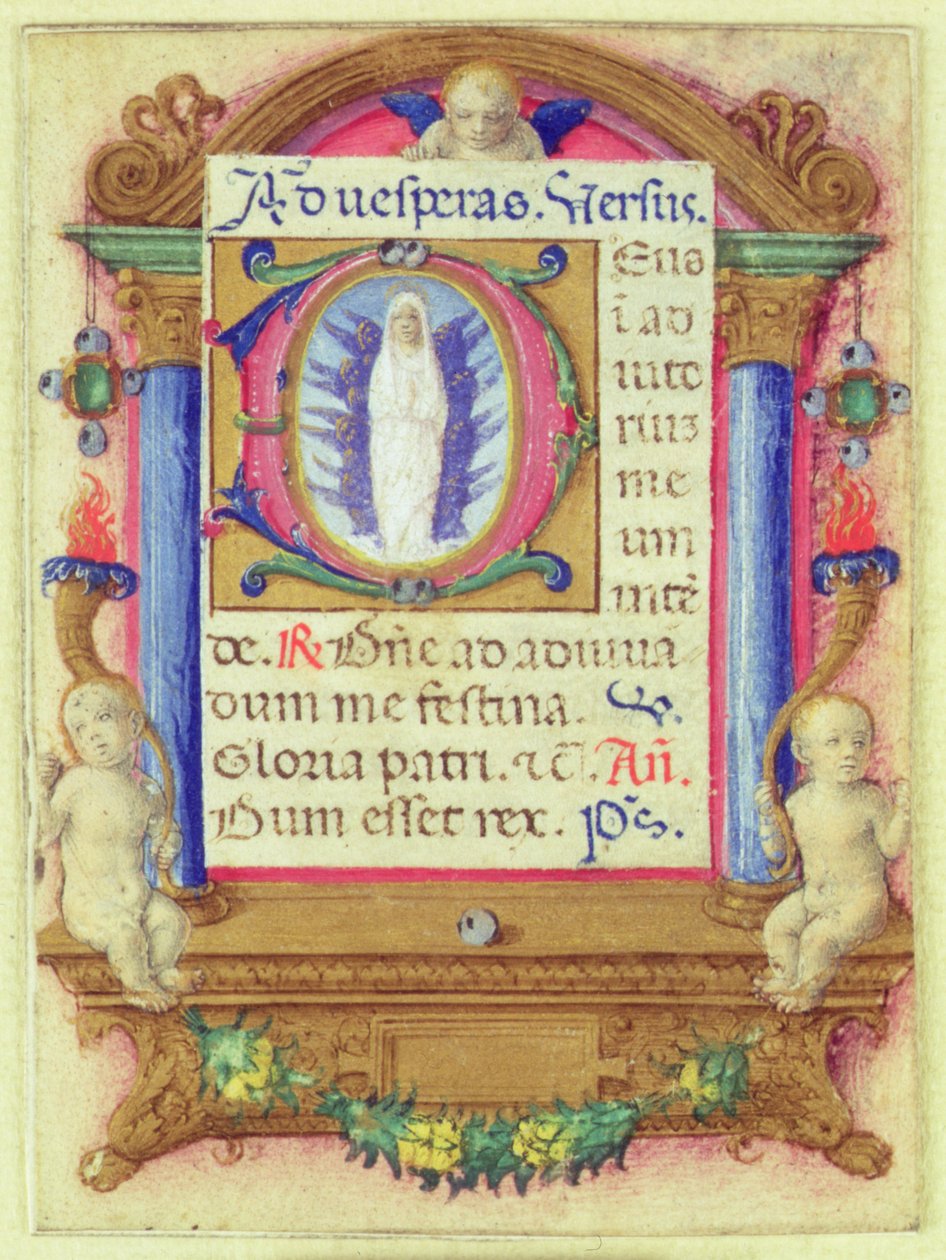 Ad uesperas. Versus.
DEus
ī ad
iuto
riuʒ
me
um
intē
de. ℟ Dñe ad adiuuā
dum me festina. ℣.
Gloria patri. ⁊c̄. Añ.
Dum esset rex. p̄s.